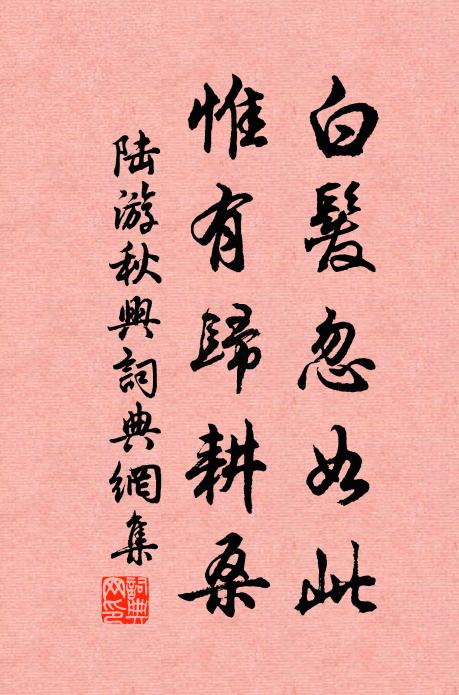 白髮忽如此
惟有歸耕桑
陸游秋興詞典網集
詞典網印